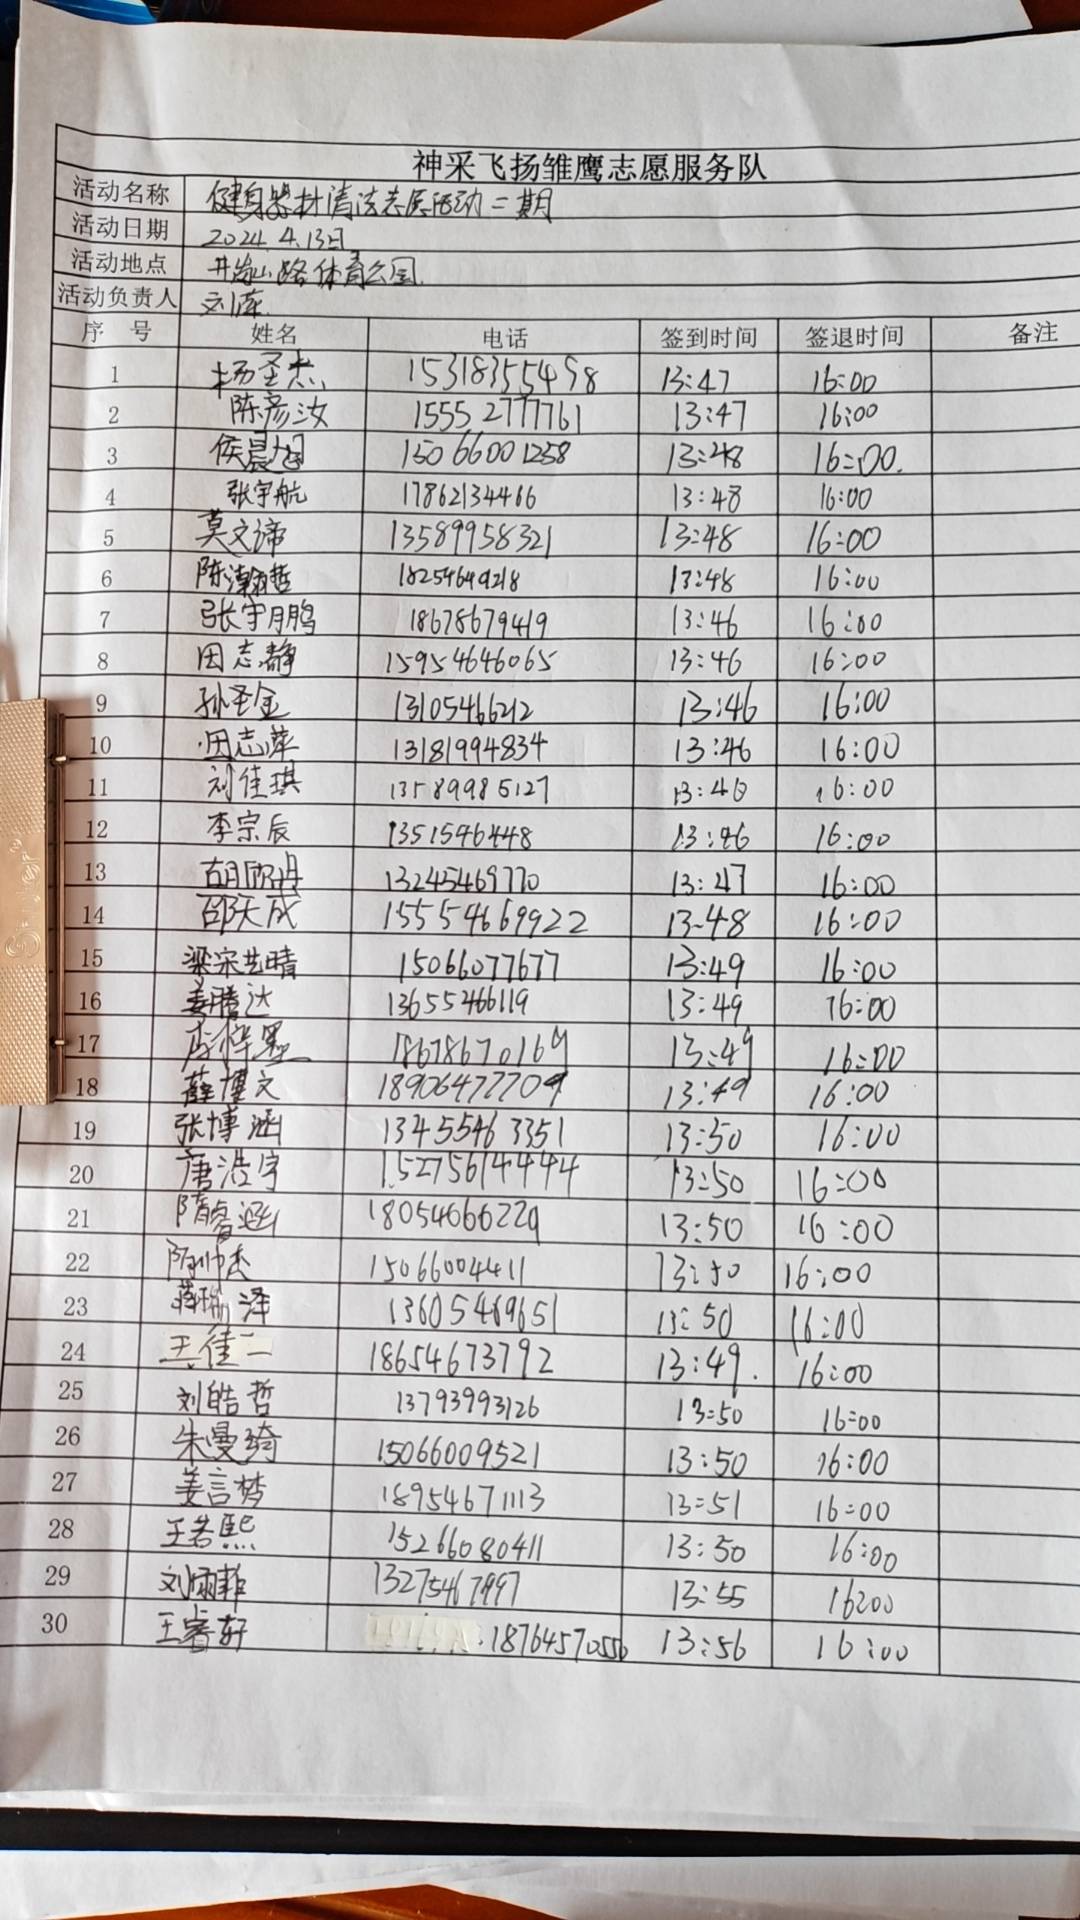 神采飞扬雏鹰志愿服务队
活动名称 健身器材清洁志愿活动二期
活动日期 2024.4.13日
活动地点 井冈山路体育公园.
活动负责人 刘萍.
序 号 姓名 电话 签到时间 签退时间 备注
1 杨圣杰 15318355498 13:47 16:00
2 陈彦汝 15552777761 13:47 16:00
3 侯晨旭 15066001258 13:48 16:00.
4 张宇航 17862134466 13:48 16:00
5 莫文谛 13589958321 13:48 16:00
6 陈瀚哲 18254649218 13:48 16:00
7 张宇鹏 18678679419 13:46 16:00
8 田志静 15954646065 13:46 16:00
9 孙圣金 13105466212 13:46 16:00
10 田志萍 13181994834 13:46 16:00
11 刘佳琪 13589985127 13:46 16:00
12 李宗辰 1351546448 13:46 16:00
13 胡欣冉 13245469770 13:47 16:00
14 邵天成 15554669922 13:48 16:00
15 梁宋艺晴 15066077677 13:49 16:00
16 姜腾达 13655466119 13:49 16:00
17 李梓墨 18678670169 13:49 16:00
18 薛博文 18906477709 13:49 16:00
19 张博涵 13455463351 13:50 16:00
20 唐浩宇 15275614444 13:50 16:00
21 隋睿涵 18054666229 13:50 16:00
22 陈帅杰 15066004411 13:50 16:00
23 蒋瑞泽 13605469651 13:50 16:00
24 王佳一 18654673792 13:49. 16:00
25 刘皓哲 13793993126 13:50 16:00
26 朱曼绮 15066009521 13:50 16:00
27 姜言梦 18954671113 13:51 16:00
28 王若熙 15266080411 13:50 16:00
29 刘雨菲 13275467997 13:55 16:00
30 王睿好 18764570550 13:56 16:00